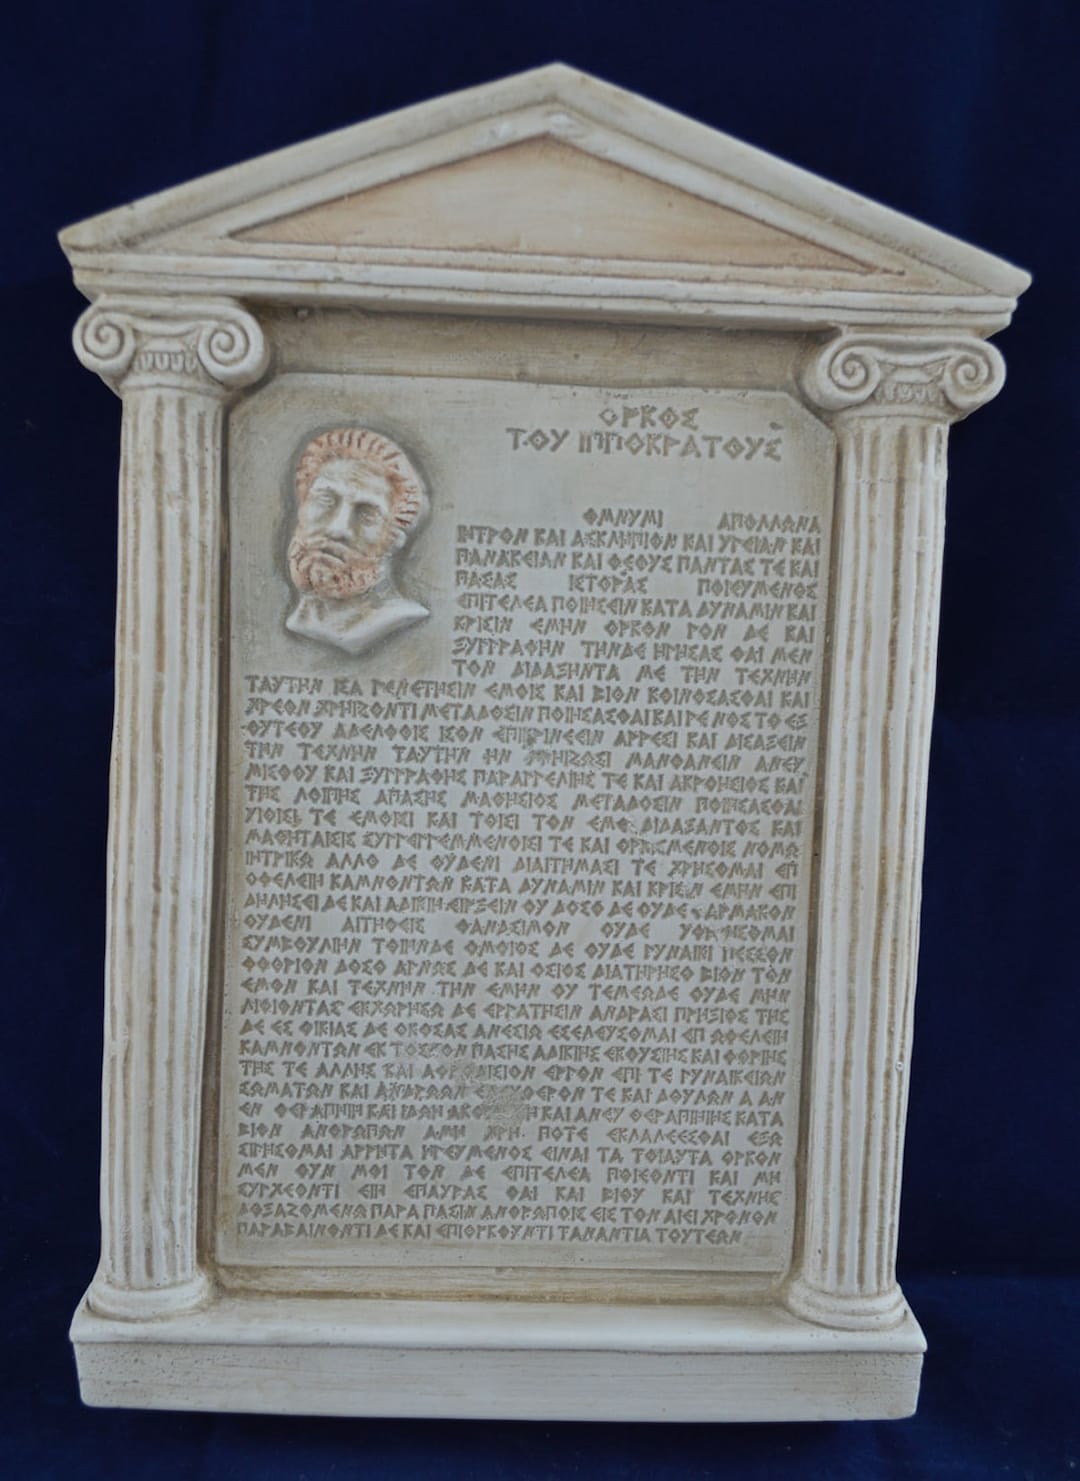 ΟΡΚΟΣ
ΤΟΥ ΙΠΠΟΚΡΑΤΟΥΣ
ΟΜΝΥΜΙ ΑΠΟΛΛΩΝΑ
ΙΗΤΡΟΝ ΚΑΙ ΑΣΚΛΗΠΙΟΝ ΚΑΙ ΥΓΕΙΑΝ ΚΑΙ
ΠΑΝΑΚΕΙΑΝ ΚΑΙ ΘΕΟΥΣ ΠΑΝΤΑΣ ΤΕ ΚΑΙ
ΠΑΣΑΣ ΙΣΤΟΡΑΣ ΠΟΙΕΥΜΕΝΟΣ
ΕΠΙΤΕΛΕΑ ΠΟΙΗΣΕΙΝ ΚΑΤΑ ΔΥΝΑΜΙΝ ΚΑΙ
ΚΡΙΣΙΝ ΕΜΗΝ ΟΡΚΟΝ ΓΟΝ ΔΕ ΚΑΙ
ΞΥΓΓΡΑΦΗΝ ΤΗΝΔΕ ΗΓΗΣΑΣ ΘΑΙ ΜΕΝ
ΤΟΝ ΔΙΔΑΞΗΝΤΑ ΜΕ ΤΗΝ ΤΕΧΝΗΝ
ΤΑΥΤΗΝ ΙΣΑ ΓΕΝΕΤΗΣΙΝ ΕΜΟΙΣ ΚΑΙ ΒΙΟΝ ΚΟΙΝΟΣΑΣΘΑΙ ΚΑΙ
ΧΡΕΟΝ ΧΡΗΙΖΟΝΤΙ ΜΕΤΑΔΟΣΙΝ ΠΟΙΗΣΑΣΘΑΙ ΚΑΙ ΓΕ ΝΟΣ ΤΟ ΕΞ
ΟΥΤΕΟΥ ΑΔΕΛΦΟΙΣ ΙΣΟΝ ΕΠΙΚΡΙΝΕΕΙΝ ΑΡΡΕΣΙ ΚΑΙ ΔΙΣΑΞΕΙΝ
ΤΗΝ ΤΕΧΝΗΝ ΤΑΥΤΗΝ ΗΝ ΧΡΗΙΖΩΣΙ ΜΑΝΘΑΝΕΙΝ ΑΝΕΥ
ΜΙΣΘΟΥ ΚΑΙ ΞΥΓΓΡΑΦΗΣ ΠΑΡΑΓΓΕΛΙΗΣ ΤΕ ΚΑΙ ΑΚΡΟΗΣΙΟΣ ΚΑΙ
ΤΗΣ ΛΟΙΠΗΣ ΑΠΑΣΗΣ ΜΑΘΗΣΙΟΣ ΜΕΤΑΔΟΣΙΝ ΠΟΙΗΣΑΣΘΑΙ
ΥΙΟΙΣΙ ΤΕ ΕΜΟΙΣΙ ΚΑΙ ΤΟΙΣΙ ΤΟΝ ΕΜΕ ΔΙΔΑΞΑΝΤΟΣ ΚΑΙ
ΜΑΘΗΤΑΙΣΙΣ ΣΥΓΓΕΓΓΕΜΜΕΝΟΙΣΙ ΤΕ ΚΑΙ ΟΡΚΙΣΜΕΝΟΙΣ ΝΟΜΩ
ΙΗΤΡΙΚΩ ΑΛΛΟ ΔΕ ΟΥΔΕΝΙ ΔΙΑΙΤΗΜΑΣΙ ΤΕ ΧΡΗΣΟΜΑΙ ΕΠ
ΟΦΕΛΕΙΗ ΚΑΜΝΟΝΤΩΝ ΚΑΤΑ ΔΥΝΑΜΙΝ ΚΑΙ ΚΡΙΣΙΝ ΕΜΗΝ ΕΠΙ
ΔΗΛΗΣΕΙ ΔΕ ΚΑΙ ΑΔΙΚΙΗ ΕΙΡΞΕΙΝ ΟΥ ΔΟΣΟ ΔΕ ΟΥΔΕ ΦΑΡΜΑΚΟΝ
ΟΥΔΕΝΙ ΑΙΤΗΘΕΙΣ ΘΑΝΑΣΙΜΟΝ ΟΥΔΕ ΥΦΗΓΗΣΟΜΑΙ
ΣΥΜΒΟΥΛΙΗΝ ΤΟΙΗΝΔΕ ΟΜΟΙΟΣ ΔΕ ΟΥΔΕ ΓΥΝΑΙΚΙ ΠΕΣΣΟΝ
ΦΘΟΡΙΟΝ ΔΟΣΟ ΑΓΝΩΣ ΔΕ ΚΑΙ ΟΣΙΟΣ ΔΙΑΤΗΡΗΣΟ ΒΙΟΝ ΤΟΝ
ΕΜΟΝ ΚΑΙ ΤΕΧΝΗΝ ΤΗΝ ΕΜΗΝ ΟΥ ΤΕΜΕΩΔΕ ΟΥΔΕ ΜΗΝ
ΛΙΘΙΟΝΤΑΣ ΕΚΧΩΡΗΣΩ ΔΕ ΕΡΓΑΤΗΣΙΝ ΑΝΔΡΑΣΙ ΠΡΗΞΙΟΣ ΤΗΣ
ΔΕ ΕΣ ΟΙΚΙΑΣ ΔΕ ΟΚΟΣΑΣ ΑΝΕΣΙΩ ΕΣΕΛΕΥΣΟΜΑΙ ΕΠ ΩΦΕΛΕΙΗ
ΚΑΜΝΟΝΤΩΝ ΕΚΤΟΣΕΟΝ ΠΑΣΗΣ ΑΔΙΚΙΗΣ ΕΚΟΥΣΙΗΣ ΚΑΙ ΦΘΟΡΙΗΣ
ΤΗΣ ΤΕ ΑΛΛΗΣ ΚΑΙ ΑΦΡΟΔΙΣΙΟΝ ΕΡΓΟΝ ΕΠΙ ΤΕ ΓΥΝΑΙΚΕΙΩΝ
ΣΩΜΑΤΩΝ ΚΑΙ ΑΝΔΡΩΩΝ ΤΕ ΚΑΙ ΔΟΥΛΩΝ Α ΑΝ
ΕΝ ΘΕΡΑΠΗΙΗ ΚΑΙ ΙΔΩΗ ΚΑΙ ΑΝΕΥ ΘΕΡΑΠΗΙΗΣ ΚΑΤΑ
ΒΙΟΝ ΑΝΘΡΩΠΩΝ Α ΜΗ ΧΡΗ ΠΟΤΕ ΕΚΛΑΛΕΕΣΘΑΙ ΕΞΩ
ΣΙΓΗΣΟΜΑΙ ΑΡΡΗΤΑ ΗΓΕΥΜΕΝΟΣ ΕΙΝΑΙ ΤΑ ΤΟΙΑΥΤΑ ΟΡΚΟΝ
ΜΕΝ ΟΥΝ ΜΟΙ ΤΟΝ ΔΕ ΕΠΙΤΕΛΕΑ ΠΟΙΕΟΝΤΙ ΚΑΙ ΜΗ
ΣΥΓΧΕΟΝΤΙ ΕΙΗ ΕΠΑΥΡΑΣ ΘΑΙ ΚΑΙ ΒΙΟΥ ΚΑΙ ΤΕΧΝΗΣ
ΔΟΞΑΖΟΜΕΝΩ ΠΑΡΑ ΠΑΣΙΝ ΑΝΘΡΩΠΟΙΣ ΕΙΣ ΤΟΝ ΑΙΕΙ ΧΡΟΝΟΝ
ΠΑΡΑΒΑΙΝΟΝΤΙ ΔΕ ΚΑΙ ΕΠΙΟΡΚΟΥΝΤΙ ΤΑΝΑΝΤΙΑ ΤΟΥΤΕΩΝ